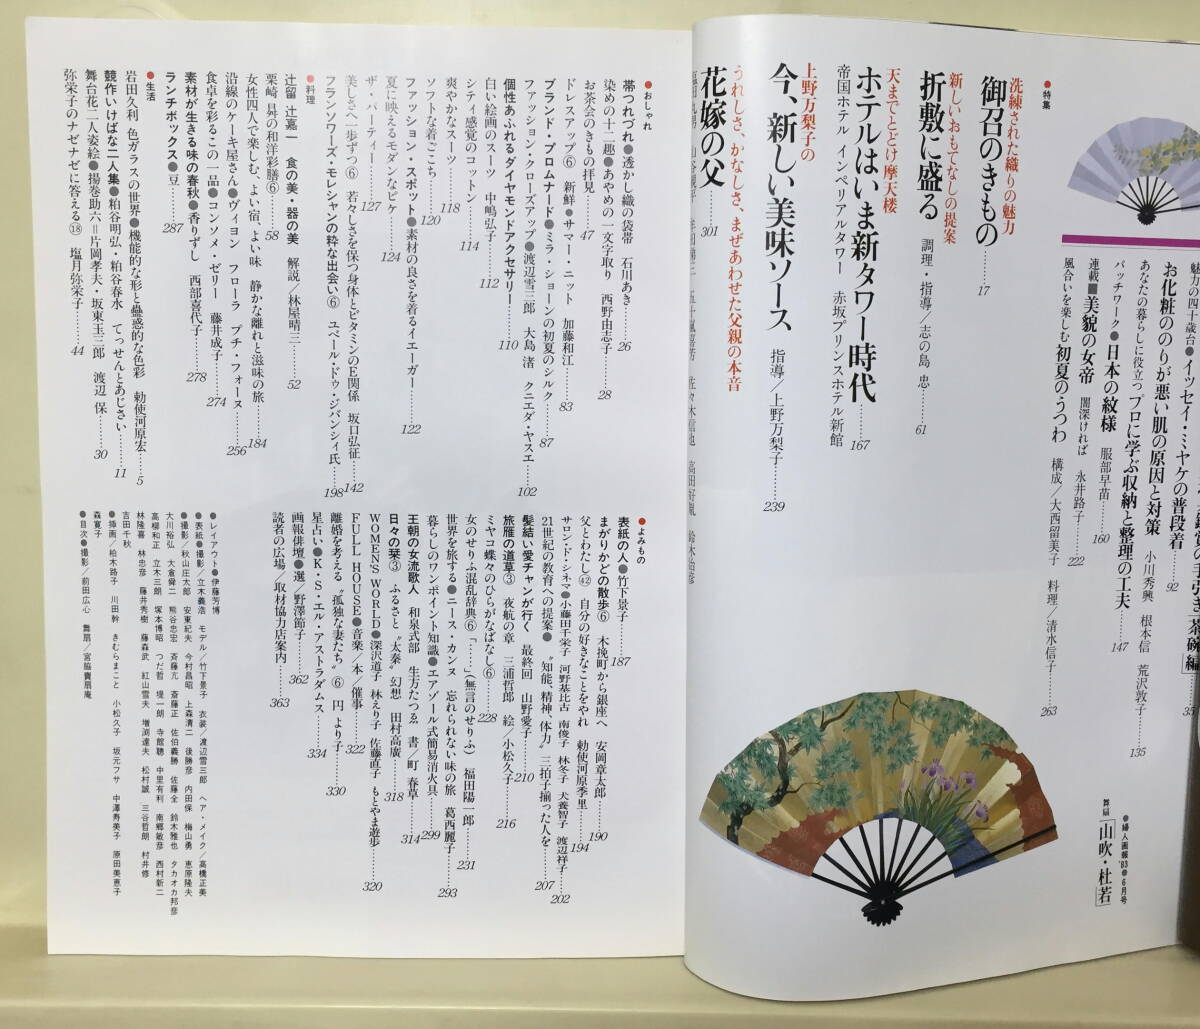 ●特集
洗練された織りの魅力
御召のきもの……17
新しいおもてなしの提案
折敷に盛る 調理・指導/志の島 忠……61
天までとどけ 摩天楼
ホテルはいま新タワー時代……167
帝国ホテル インペリアルタワー 赤坂プリンスホテル新館
上野万梨子の
今、新しい美味ソース 指導/上野万梨子……239
うれしさ、かなしさ、まぜあわせた父親の本音
花嫁の父……301
魅力の四十歳台●イッセイ・ミヤケの普段着……92
お化粧ののりが悪い肌の原因と対策 小川秀興 根本信 荒沢敦子……135
あなたの暮らしに役立つプロに学ぶ収納と整理の工夫……147
パッチワーク●日本の紋様 服部早苗……160
連載■美貌の女帝 闇深ければ 永井路子……222
風合いを楽しむ初夏のうつわ 構成/大西留美子 料理/清水信子……263
●婦人画報'83●6月号
舞扇「山吹・杜若」
●おしゃれ
帯つれづれ●透かし織の袋帯 石川あき……26
染めの十二趣●あやめの一文字取り 西野由志子……28
お茶会のきもの拝見……47
ドレスアップ⑥ 新鮮●サマー・ニット 加藤和江……83
ブランド・プロムナード●ミラ・ショーンの初夏のシルク……87
ファッション・クローズアップ●渡辺雪三郎 大島 渚 クニエダ・ヤスエ……102
個性あふれるダイヤモンドアクセサリー……110
白い絵画のスーツ 中嶋弘子……112
シティ感覚のコットン……114
爽やかなスーツ……118
ソフトな着ごこち……120
ファッション・スポット●素材の良さを着るイエーガー……122
夏に映えるモダンなピケ……124
ザ・パーティー……127
美しさへ一歩ずつ⑥ 若々しさを保つ身体とビタミンのE関係 坂口弘征……142
フランソワーズ・モレシャンの粋な出会い⑥ ユベール・ドゥ・ジバンシィ氏……198
●料理
辻留 辻嘉一 食の美・器の美 解説/林屋晴三……52
栗崎 昇の和洋彩膳⑥……58
女性四人で楽しむ、よい宿、よい味 静かな離れと滋味の旅……184
沿線のケーキ屋さん●ヴィヨン フローラ プチ・フォーヌ……256
食卓を彩るこの一品●コンソメ・ゼリー 藤井成子……274
素材が生きる味の春秋●香りずし 西部喜代子……278
ランチボックス●豆……287
●生活
岩田久利 色ガラスの世界●機能的な形と蠱惑的な色彩 勅使河原宏……5
競作いけばな二人集●粕谷明弘・粕谷春水 てっせんとあじさい……11
舞台花二人姿絵●揚巻助六=片岡孝夫・坂東玉三郎 渡辺 保……30
弥栄子のナゼナゼに答える⑱ 塩月弥栄子……44
●よみもの
表紙の人●竹下景子……187
まがりかどの散歩⑥ 木挽町から銀座へ 安岡章太郎……190
父とわたし㊷ 自分の好きなことをやれ 勅使河原季里……194
サロン・ド・シネマ●小藤田千栄子 河野基比古 南俊子 林冬子 犬養智子 渡辺祥子……202
21世紀の教育への提案●“知能、精神、体力”三拍子揃った人を……207
髪結い愛チャンが行く 最終回 山野愛子……210
旅雁の道草③ 夜航の章 三浦哲郎 絵/小松久子……216
ミヤコ蝶々のひらがなばなし⑥……228
女のせりふ混乱辞典⑥「……」(無言のせりふ) 福田陽一郎……231
世界を旅する●ニース・カンヌ 忘れられない味の旅 葛西麗子……293
暮らしのワンポイント知識●エアゾール式簡易消火具……299
王朝の女流歌人 和泉式部 生方たつゑ 書/町 春草……314
日々の栞③ ふるさと“太秦”幻想 田村高廣……318
WOMEN'S WORLD●深沢道子 林えり子 佐藤直子 もとやま遊歩……320
FULL HOUSE●音楽/本/催事……322
離婚を考える“孤独な妻たち”⑥ 円より子……330
星占い●K・S・エル・アストラダムス……334
画報俳壇●選/野澤節子……362
読者の広場/取材協力店案内……363
●レイアウト●伊藤芳博
●表紙●撮影/立木義浩 モデル/竹下景子 衣装/渡辺雪三郎 ヘア・メイク/高橋正美
●撮影/秋山庄太郎 安東紀夫 今村昌昭 上森清二 後勝彦 内田保 梅山勇 恵原隆夫
大川裕弘 大倉舜二 熊谷忠宏 斎藤亢 斎藤正 佐伯義勝 佐藤全 鈴木雅也 タカオカ邦彦
高柳和正 立木三朗 塚本博昭 つだ哲 堤一朗 寺館聴 中里有利 南郷敏彦 西村新二
林隆喜 林忠彦 藤井秀樹 藤森武 紅山雪夫 増渕達夫 松村誠 三谷哲朗 村井修
吉田千秋
●挿画/柏木路子 川田幹 きむらまこと 小松久子 坂元フサ 中澤寿美子 原田美恵子
森寛子
●目次●撮影/前田広心 舞扇/宮脇賣扇庵